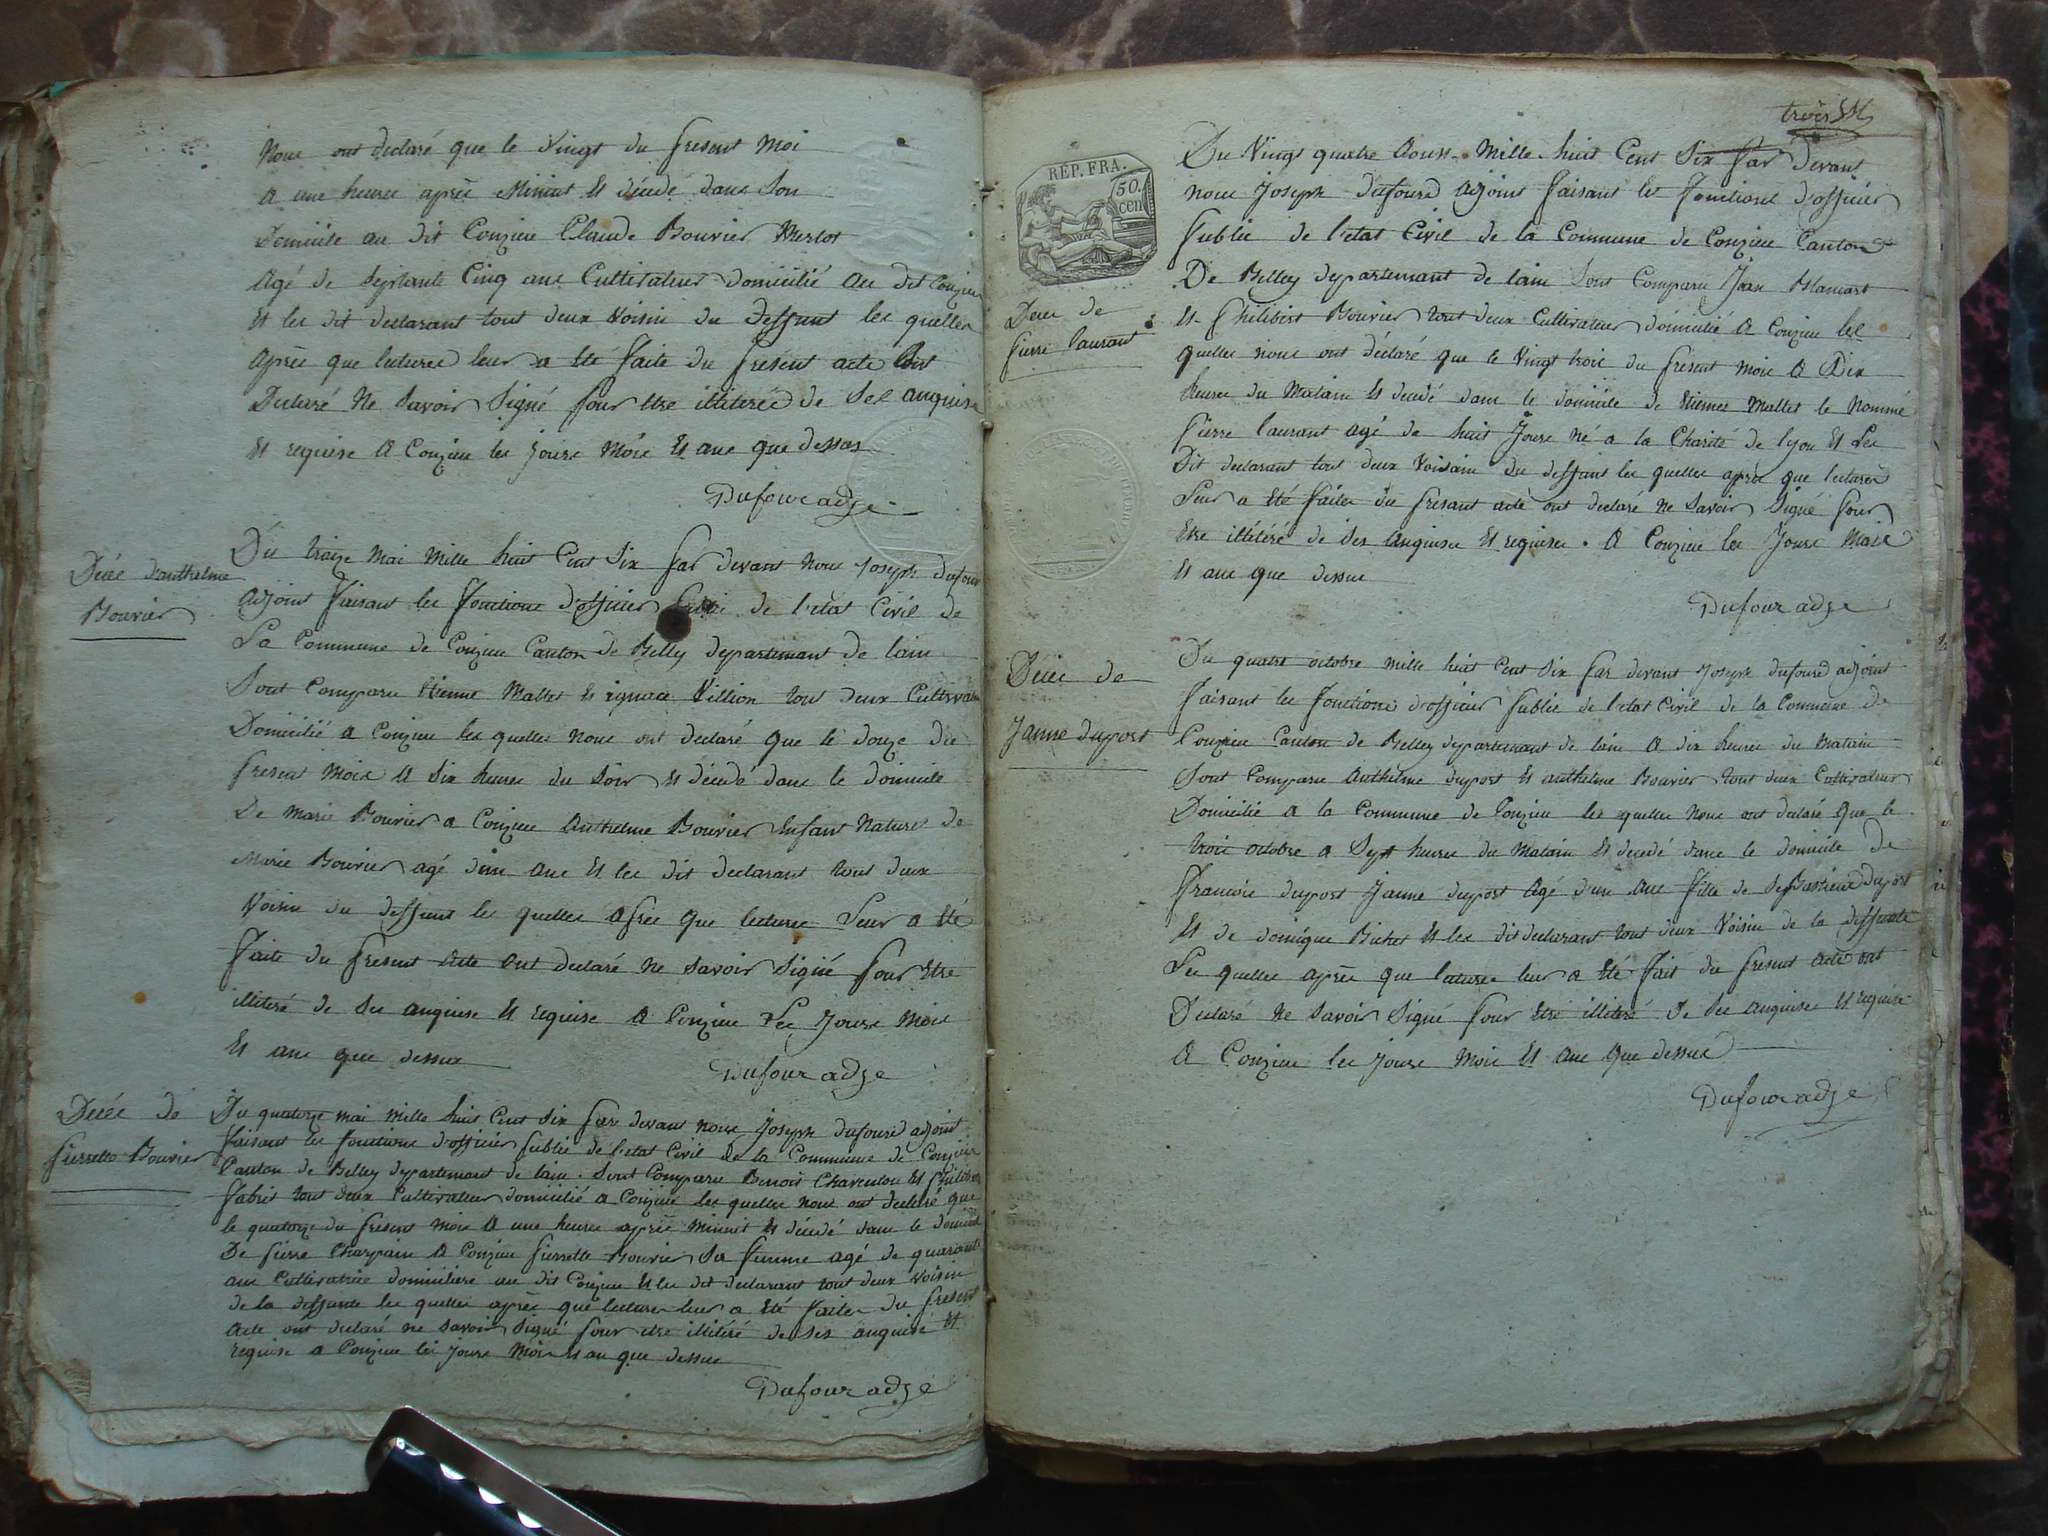 Nous ont declaré que le vingt du present Moi
a une heures aprés Minuit Et décédé dans Son
Domicile au dit Conzieu Claude Bouvier Merlot
agé de Septante Cinq ans Cultivateur domicilié au dit Conzieu
Et les dit declarant tout deux Voisin du deffunt les quelles
aprés que lectures leur a Eté faite du present acte ont
Declaré Ne Savoir Signé pour Etre illiterée de Ses anquise
Et requise a Conzieu les Jours Mois Et ans que dessus
Dufour adje
Décé danthelme
Bouvier
Du traize Mai Mille huit Cent Six par devant Nous Joseph dufour
adjoint faisant les fonctions d'officier Public de l'etat Civil de
La Commune de Conzieu Canton de Belley departemant de lain
Sont Comparu Etienne Mallet Et ignace Villion tout deux Cultivateur
Domicilié a Conzieu les quelles nous ont declaré que le douze du
present Mois a Six heures du Soir Et décédé dans le domicile
De Marie Bouvier a Conzieu Anthelme Bouvier Enfant Naturel de
Marie Bouvier agé dun ans Et les dit declarant tout deux
Voisin du deffunt les quelles aprés que lectures Leur a Eté
faite du present acte ont declaré ne savoir Signé pour Etre
illiteré de Ses anquise Et requise a Conzieu Les Jours Mois
Et ans que dessus
Dufour adje
Décés de
pierrette Bouvier
Du quatorze mai mille huit Cent Six par devant nous Joseph dufour adjoint
faisant les fonctions d'officier public de l'etat Civil de la Commune de Conzieu
Canton de Belley departemant de lain. Sont Comparu Benoit Charveulou Et philibert
fabrit tout deux Cultivateur domicilié a Conzieu les quelles nous ont declaré que
le quatorze du present mois a une heures aprés minuit Et décédé dans le domicile
De pierre Charpain a Conzieu pierrette Bouvier Sa femme agé de quarante
ans Cultivatrice domiciliere au dit Conzieu Et les dit declarant tout deux voisin
de la deffunte les quelles aprés que lectures leur a Eté faites du present
acte ont declaré ne savoir Signé pour etre illitéré de Ses anquise Et
requise a Conzieu les jours Mois Et an que dessus
Dufour adje
trois
RÉP. FRA.
50.
cen
Deces de
pierre laurant
Du Vingt quatre aoust Mille huit Cent Six par devant
nous Joseph dufour adjoint faisant les fonctions d'officier
public de l'etat Civil de la Commune de Conzieu Canton
De Belley departemant de lain Sont Comparu Jean Blancart
Et philibert Bouvier tout deux Cultivateur domicilié a Conzieu les
quelles nous ont déclaré que le Vingt trois du present mois a Dix
heures du Matain Et decédé dans le domicile de Etiennes Mallet le Nommé
pierre laurant agé de huit Jours né a la Charité de lyon Et Les
Dit declarant tout deux Voisain du deffunt les quelles aprés que lectures
Leur a Eté faites du presant acte ont declaré ne savoir Signé pour
Etre illitéré de Ses anquises Et requises. a Conzieu les Jours Mois
Et ans que dessus
Dufour adje
Décés de
Janne duport
Du quatre octobre mille huit Cent Six par devant Joseph dufour adjoint
faisant les fonctions d'officier public de l'etat Civil de la Commune de
Conzieu Canton de Belley departemant de lain a dix heures du Matain
Sont Comparu Anthelme duport Et anthelme Bouvier tout deux Cultivateur
Domicilié a la Commune de Conzieu les quelles Nous ont declaré que le
trois octobre a Sept heures du Matain Et decedé dans le domicile de
francois duport Janne duport Agé d'un ans fille de Sebastien duport
Et de dominique Bichet Et les dit declarant tout deux Voisin de la deffunte
Les quelles aprés que lectures leur a Eté fait du present acte ont
Declaré Ne Savoir Signé pour Etre illiteré De Ses anquises Et requise
a Conzieu les jours Mois Et ans que dessus
Dufour adje